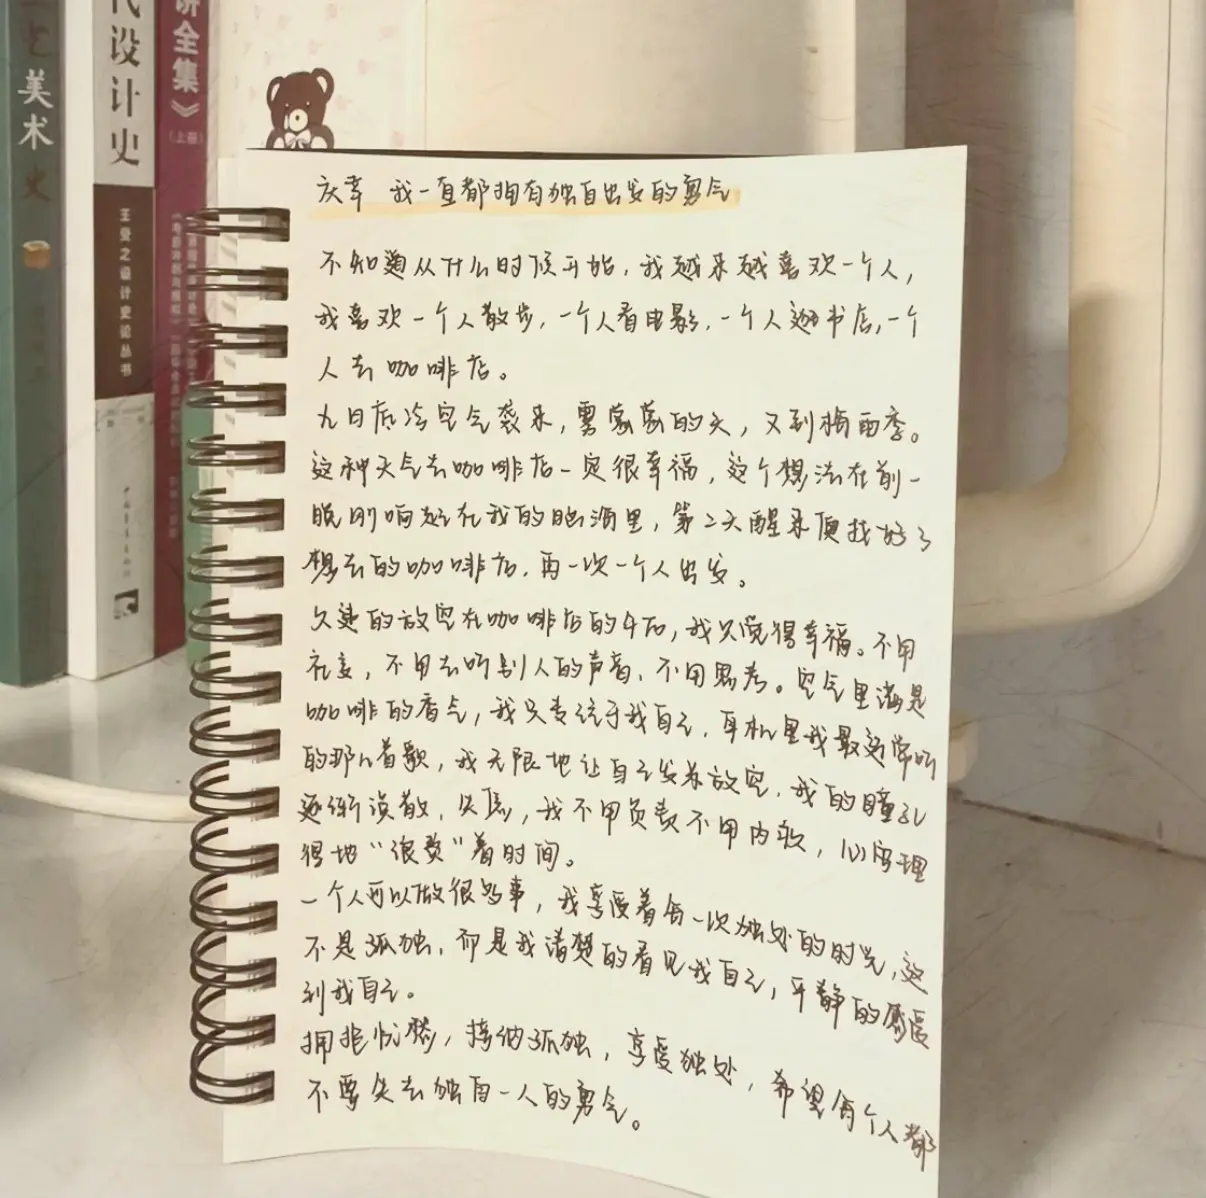 美术史
代设计史
讲全集》
(上册)
王受之设计史论丛书
庆幸 我一直都拥有独自出发的勇气
不知道从什么时候开始,我越来越喜欢一个人,
我喜欢一个人散步,一个人看电影,一个人逛书店,一个
人去咖啡店。
九日后冷空气袭来,雾蒙蒙的天,又到梅雨季。
这种天气去咖啡店一定很幸福,这个想法在前一
晚刚响起在我的脑海里,第二天醒来便找好了
想去的咖啡店,再一次一个人出发。
久违的放空在咖啡店的午后,我只觉得幸福。不用
社交,不用去听别人的声音,不用思考。空气里满是
咖啡的香气,我只专注于我自己,耳机里我最近常听
的那几首歌,我无限地让自己发呆放空,我的瞳孔
逐渐涣散,失焦,我不用负责不用内耗,心安理
得地“浪费”着时间。
一个人可以做很多事,我享受着每一次独处的时光,这
不是孤独,而是我清楚的看见我自己,平静的感受
到我自己。
拥抱忧愁,接纳孤独,享受独处,希望每个人都
不要失去独自一人的勇气。